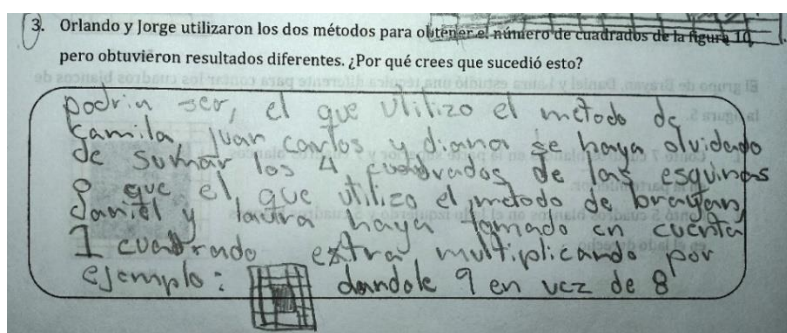 3. Orlando y Jorge utilizaron los dos métodos para obtener el número de cuadrados de la figura 10,
pero obtuvieron resultados diferentes. ¿Por qué crees que sucedió esto?
podria ser, el que utilizo el metodo de
Camila, Juan carlos y diana se haya olvidado
de sumar los 4 cuadrados de las esquinas
o que el que utilizo el metodo de brayan,
daniel y laura haya tomado en cuenta
1 cuadrado extra multiplicando por
ejemplo: dandole 9 en vez de 8